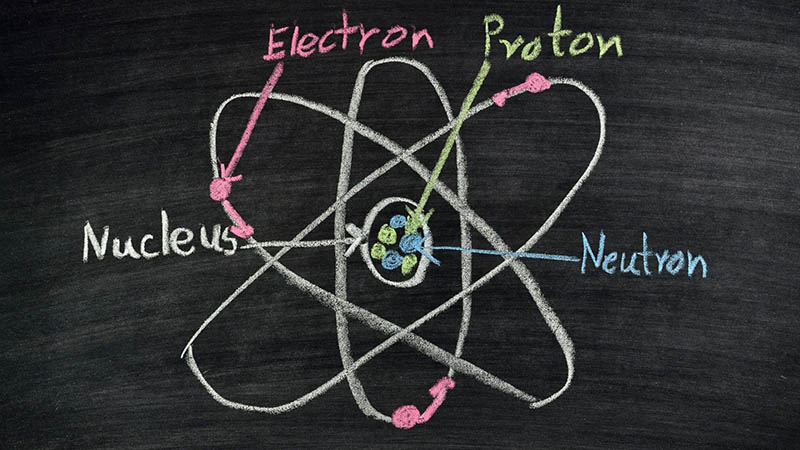 Electron
Proton
Nucleus
Neutron